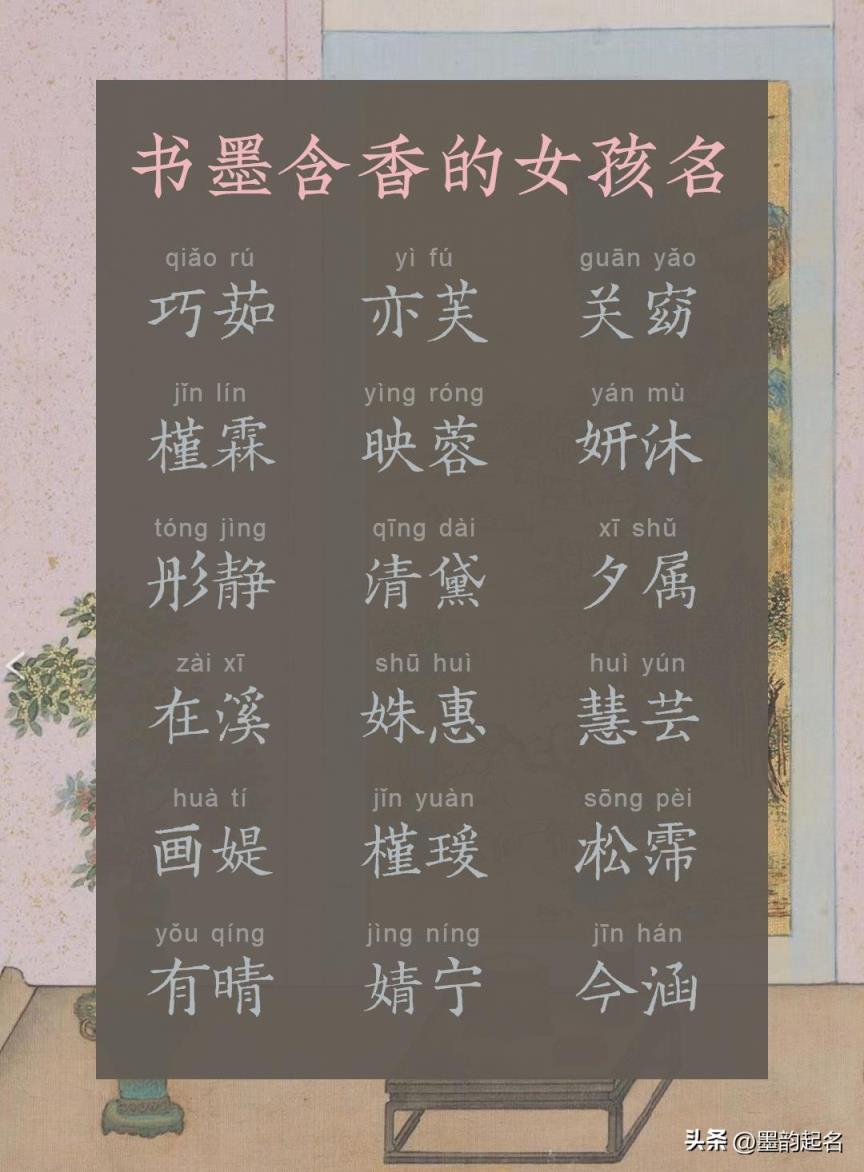 书墨含香的女孩名
qiǎo rú yì fú guān yǎo
巧茹 亦芙 关窈
jǐn lín yìng róng yán mù
槿霖 映蓉 妍沐
tóng jìng qīng dài xī shǔ
彤静 清黛 夕属
zài xī shū huì huì yún
在溪 姝惠 慧芸
huà tí jǐn yuàn sōng pèi
画媞 槿瑗 凇霈
yǒu qíng jìng níng jīn hán
有晴 婧宁 今涵
头条 @墨韵起名